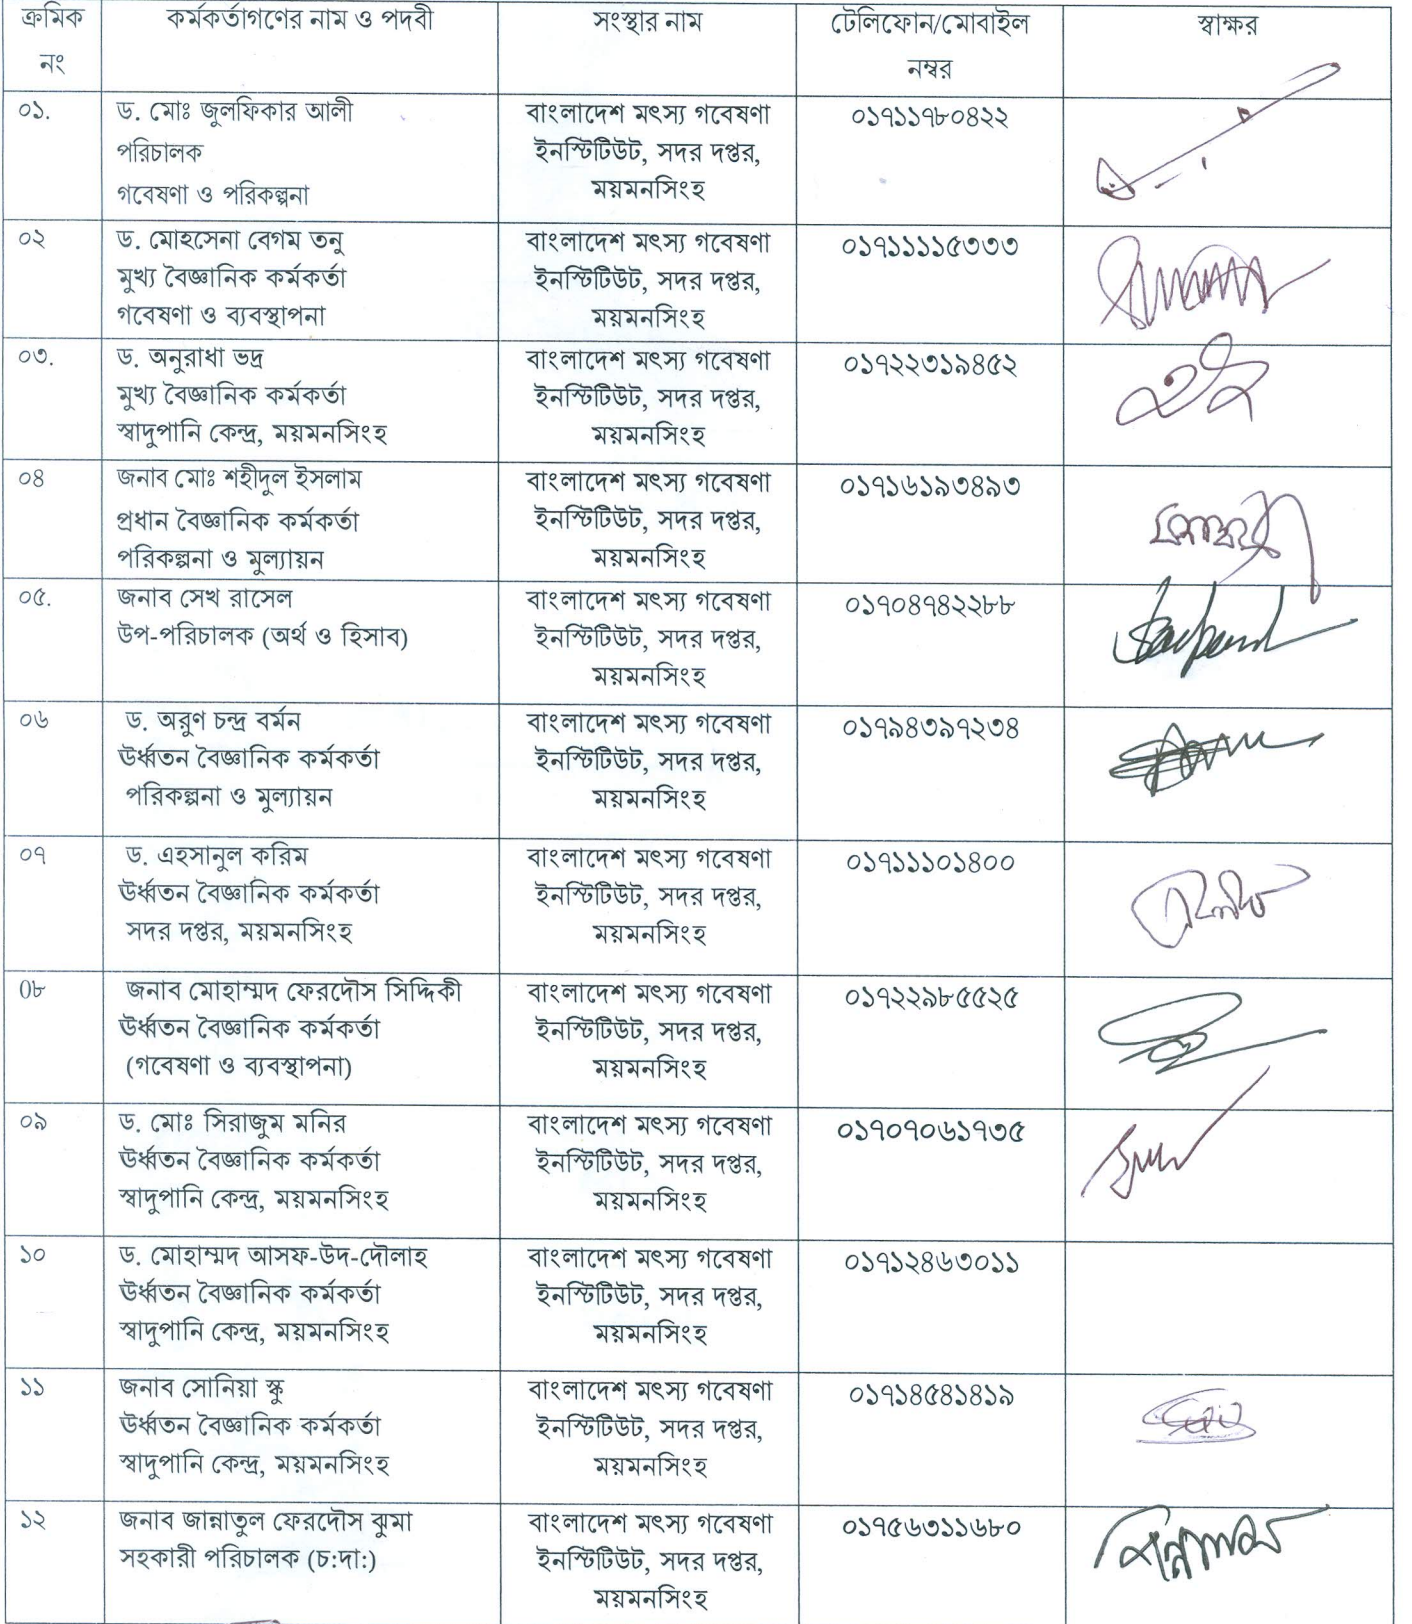 ক্রমিক নং	কর্মকর্তাগণের নাম ও পদবী	সংস্থার নাম	টেলিফোন/মোবাইল নম্বর	স্বাক্ষর
০১.
ড. মোঃ জুলফিকার আলী
পরিচালক
গবেষণা ও পরিকল্পনা
বাংলাদেশ মৎস্য গবেষণা
ইনস্টিটিউট, সদর দপ্তর,
ময়মনসিংহ
০১৭১১৭৮০৪২২
০২
ড. মোহসেনা বেগম তনু
মুখ্য বৈজ্ঞানিক কর্মকর্তা
গবেষণা ও ব্যবস্থাপনা
বাংলাদেশ মৎস্য গবেষণা
ইনস্টিটিউট, সদর দপ্তর,
ময়মনসিংহ
০১৭১১১১৫৩৩৩
০৩.
ড. অনুরাধা ভদ্র
মুখ্য বৈজ্ঞানিক কর্মকর্তা
স্বাদুপানি কেন্দ্র, ময়মনসিংহ
বাংলাদেশ মৎস্য গবেষণা
ইনস্টিটিউট, সদর দপ্তর,
ময়মনসিংহ
০১৭২২৩১৯৪৫২
০৪
জনাব মোঃ শহীদুল ইসলাম
প্রধান বৈজ্ঞানিক কর্মকর্তা
পরিকল্পনা ও মুল্যায়ন
বাংলাদেশ মৎস্য গবেষণা
ইনস্টিটিউট, সদর দপ্তর,
ময়মনসিংহ
০১৭১৬১৯৩৪৯৩
০৫.
জনাব সেখ রাসেল
উপ-পরিচালক (অর্থ ও হিসাব)
বাংলাদেশ মৎস্য গবেষণা
ইনস্টিটিউট, সদর দপ্তর,
ময়মনসিংহ
০১৭০৪৭৪২২৮৮
০৬
ড. অরুণ চন্দ্র বর্মন
ঊর্ধ্বতন বৈজ্ঞানিক কর্মকর্তা
পরিকল্পনা ও মুল্যায়ন
বাংলাদেশ মৎস্য গবেষণা
ইনস্টিটিউট, সদর দপ্তর,
ময়মনসিংহ
০১৭৯৪৩৯৭২৩৪
০৭
ড. এহসানুল করিম
ঊর্ধ্বতন বৈজ্ঞানিক কর্মকর্তা
সদর দপ্তর, ময়মনসিংহ
বাংলাদেশ মৎস্য গবেষণা
ইনস্টিটিউট, সদর দপ্তর,
ময়মনসিংহ
০১৭১১১০১৪০০
0৮
জনাব মোহাম্মদ ফেরদৌস সিদ্দিকী
ঊর্ধ্বতন বৈজ্ঞানিক কর্মকর্তা
(গবেষণা ও ব্যবস্থাপনা)
বাংলাদেশ মৎস্য গবেষণা
ইনস্টিটিউট, সদর দপ্তর,
ময়মনসিংহ
০১৭২২৯৮৫৫২৫
০৯
ড. মোঃ সিরাজুম মনির
ঊর্ধ্বতন বৈজ্ঞানিক কর্মকর্তা
স্বাদুপানি কেন্দ্র, ময়মনসিংহ
বাংলাদেশ মৎস্য গবেষণা
ইনস্টিটিউট, সদর দপ্তর,
ময়মনসিংহ
০১৭০৭০৬১৭৩৫
১০
ড. মোহাম্মদ আসফ-উদ-দৌলাহ
ঊর্ধ্বতন বৈজ্ঞানিক কর্মকর্তা
স্বাদুপানি কেন্দ্র, ময়মনসিংহ
বাংলাদেশ মৎস্য গবেষণা
ইনস্টিটিউট, সদর দপ্তর,
ময়মনসিংহ
০১৭১২৪৬৩০১১
১১
জনাব সোনিয়া স্কু
ঊর্ধ্বতন বৈজ্ঞানিক কর্মকর্তা
স্বাদুপানি কেন্দ্র, ময়মনসিংহ
বাংলাদেশ মৎস্য গবেষণা
ইনস্টিটিউট, সদর দপ্তর,
ময়মনসিংহ
০১৭১৪৫৪১৪১৯
১২
জনাব জান্নাতুল ফেরদৌস ঝুমা
সহকারী পরিচালক (চ:দা:)
বাংলাদেশ মৎস্য গবেষণা
ইনস্টিটিউট, সদর দপ্তর,
ময়মনসিংহ
০১৭৫৬৩১১৬৮০